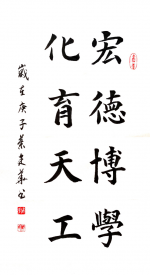 宏德博學
化育天工
歲在庚子葉文華書